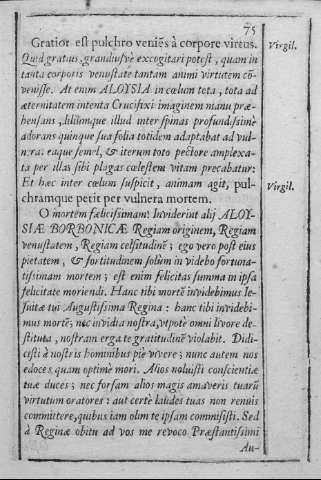 75
Gratior est pulchro veniẽs à corpore virtus. Virgil.
Quid gratius, grandiusvè excogitari potest, quam in
tanta corporis venustate tantam animi virtutem cõ-
venisse. At enim ALOYSIA in cœlum tota, tota ad
æternitatem intenta Crucifixi imaginem manu præ-
hensans, liliumque illud inter spinas profundissimè
adorans quinque sua folia totidem adaptabat ad vul-
nera: eaque semel, & iterum toto pectore amplexa-
ta per illas sibi plagas cœlestem vitam precabatur:
Et hæc inter cœlum suspicit, animam agit, pul- Virgil.
chramque petit per vulnera mortem.
O mortem fælicissimam! Inviderint alij ALOY-
SIÆ BORBONICÆ Regiam originem, Regiam
venustatem, Regiam celsitudinẽ; ego vero post eius
pietatem, & fortitudinem solùm invidebo fortuna-
tissimam mortem; est enim felicitas summa in ipsa
felicitate moriendi. Hanc tibi mortẽ invidebimus Ie-
suitæ tui Augustissima Regina: hanc tibi invidebi-
mus mortẽ; nec invidia nostra, vtpotè omni livore de-
stituta, nostram erga te gratitudinẽ violabit. Didi-
cisti à nostris hominibus piè vivere; nunc autem nos
edoces, quam optimè mori. Alios noluisti conscientiæ
tuæ duces; nec forsam alios magis amaveris tuarũ
virtutum oratores: aut certè laudes tuas non renuis
committere, quibus iam olim te ipsam commisisti. Sed
à Reginæ obitu ad vos me revoco Præstantissimi
Au-